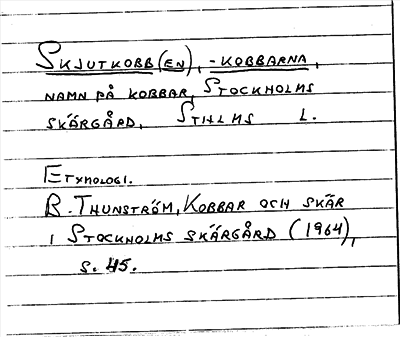 SKJUTKOBB(EN), -KOBBARNA,
NAMN PÅ KOBBAR, STOCKHOLMS
SKÄRGÅRD, STHLMS L.
ETYMOLOGI.
B. THUNSTRÖM, KOBBAR OCH SKÄR
I STOCKHOLMS SKÄRGÅRD (1964),
S. 45.